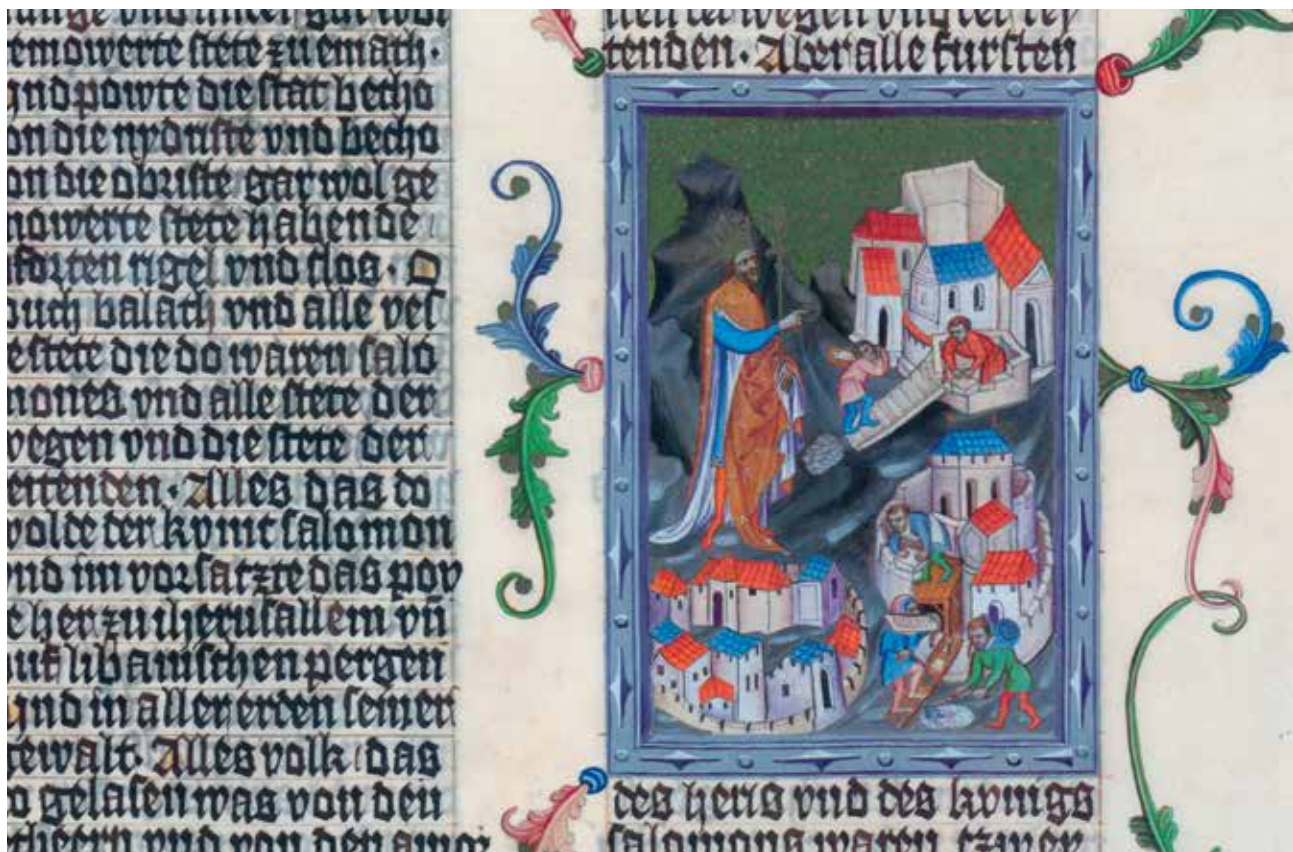 gemowerte stete zu emath.
vnd powte die stat betho
on die nydriste vnd betho
on die obriste gar wol ge
mowerte stete habende
pforten rigel vnd slos. O
uch balath vnd alle ves
te stete die do waren salo
mones vnd alle stete der
wegen vnd die stete der
reitenden. Alles das do
wolde der kvnic salomon
vnd im vorsatzte das pow
te her zu iherusallem vn̄
auf libanischen pergen
vnd in aller erden seiner
gewalt. Alles volk das
do gelasen was von den
vnd von den
tenden. Aber alle fursten
des heris vnd des kvnigs
salomons waren czwey